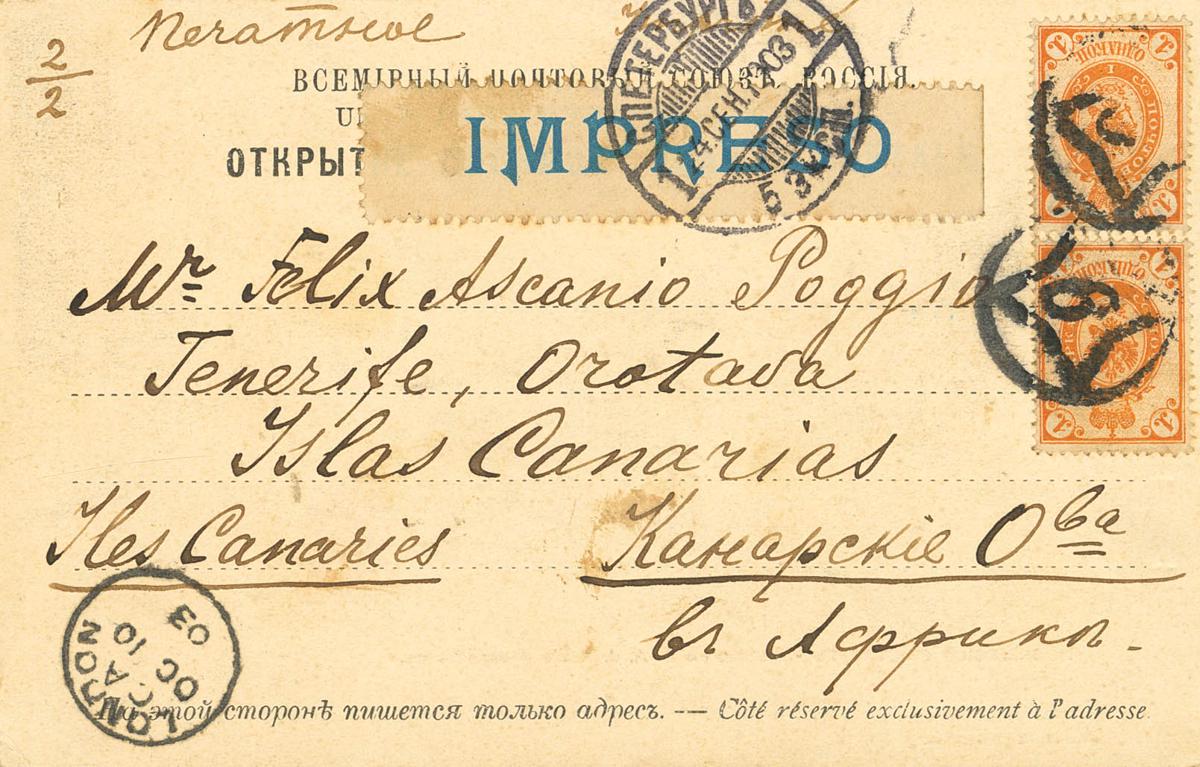 Печатное
2
2
ВСЕМІРНЫЙ ПОЧТОВЫЙ СОЮЗЪ. РОССІЯ.
ОТКРЫТ
IMPRESO
С.ПЕТЕРБУРГЪ
1 24 СЕН. 1903 1
5 ЭКСП.
1 ОДНАКОП. 1
6
Mr Felix Ascanio Poggio
Tenerife, Orotava
Islas Canarias
Iles Canaries Канарскіе Ова
въ Африкѣ.
LONDON
CA
OC 10
03
На этой сторонѣ пишется только адресъ. — Côté réservé exclusivement à l'adresse